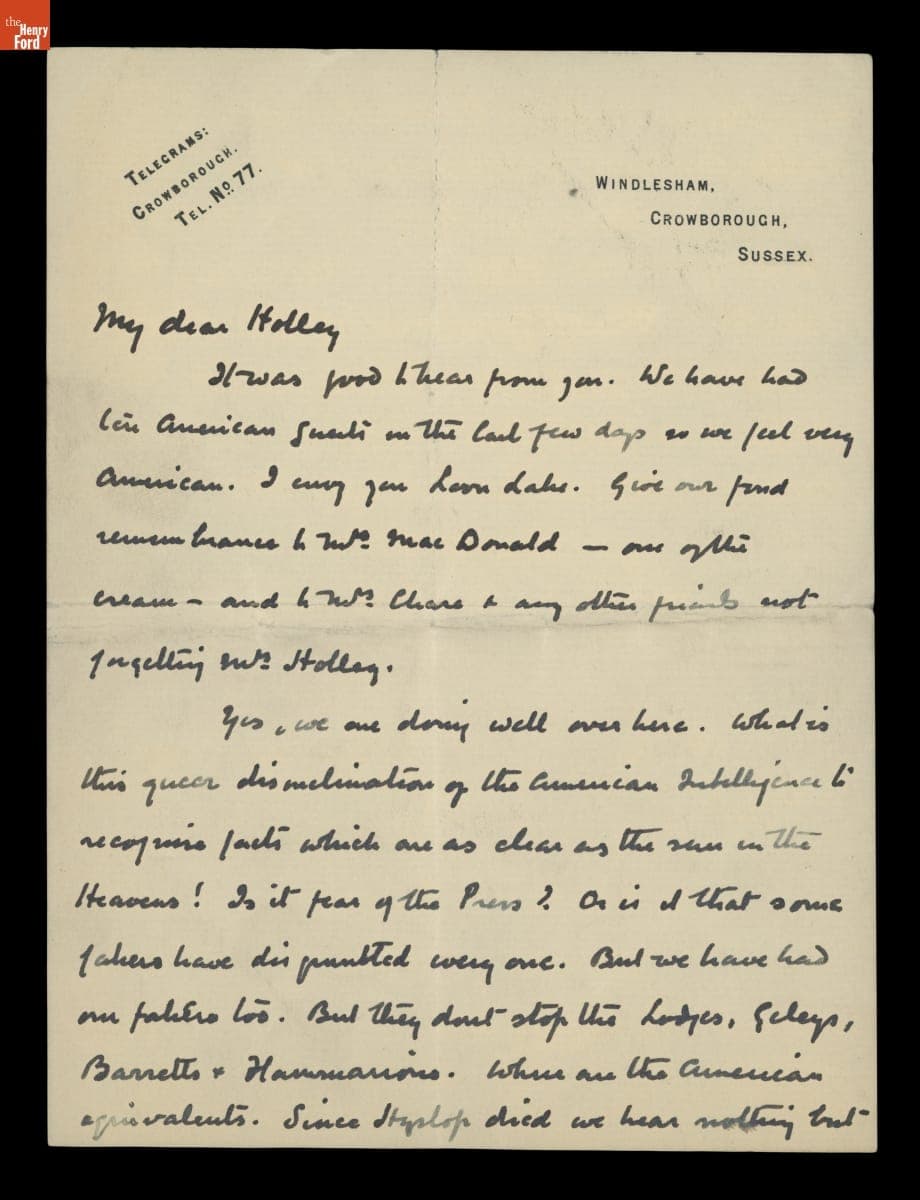 the
Henry
Ford
TELEGRAMS:
CROWBOROUGH.
TEL. No. 77.
WINDLESHAM,
CROWBOROUGH,
SUSSEX.
My dear Holley
It was good to hear from you. We have had
ten American guests in the last few days so we feel very
American. I envy you Loon Lake. Give our fond
remembrance to Mrs. MacDonald — one of the
cream – and to Mrs. Chase & any other friends not
forgetting Mrs. Holley.
Yes, we are doing well over here. What is
this queer disinclination of the American Intelligence to
recognise facts which are as clear as the sun in the
Heavens! Is it fear of the Press? Or is it that some
fakers have disgruntled every one. But we have had
our fakers too. But they dont stop the Lodges, Geleys,
Barretts & Flammarions. Where are the American
equivalents. Since Hyslop died we hear nothing but